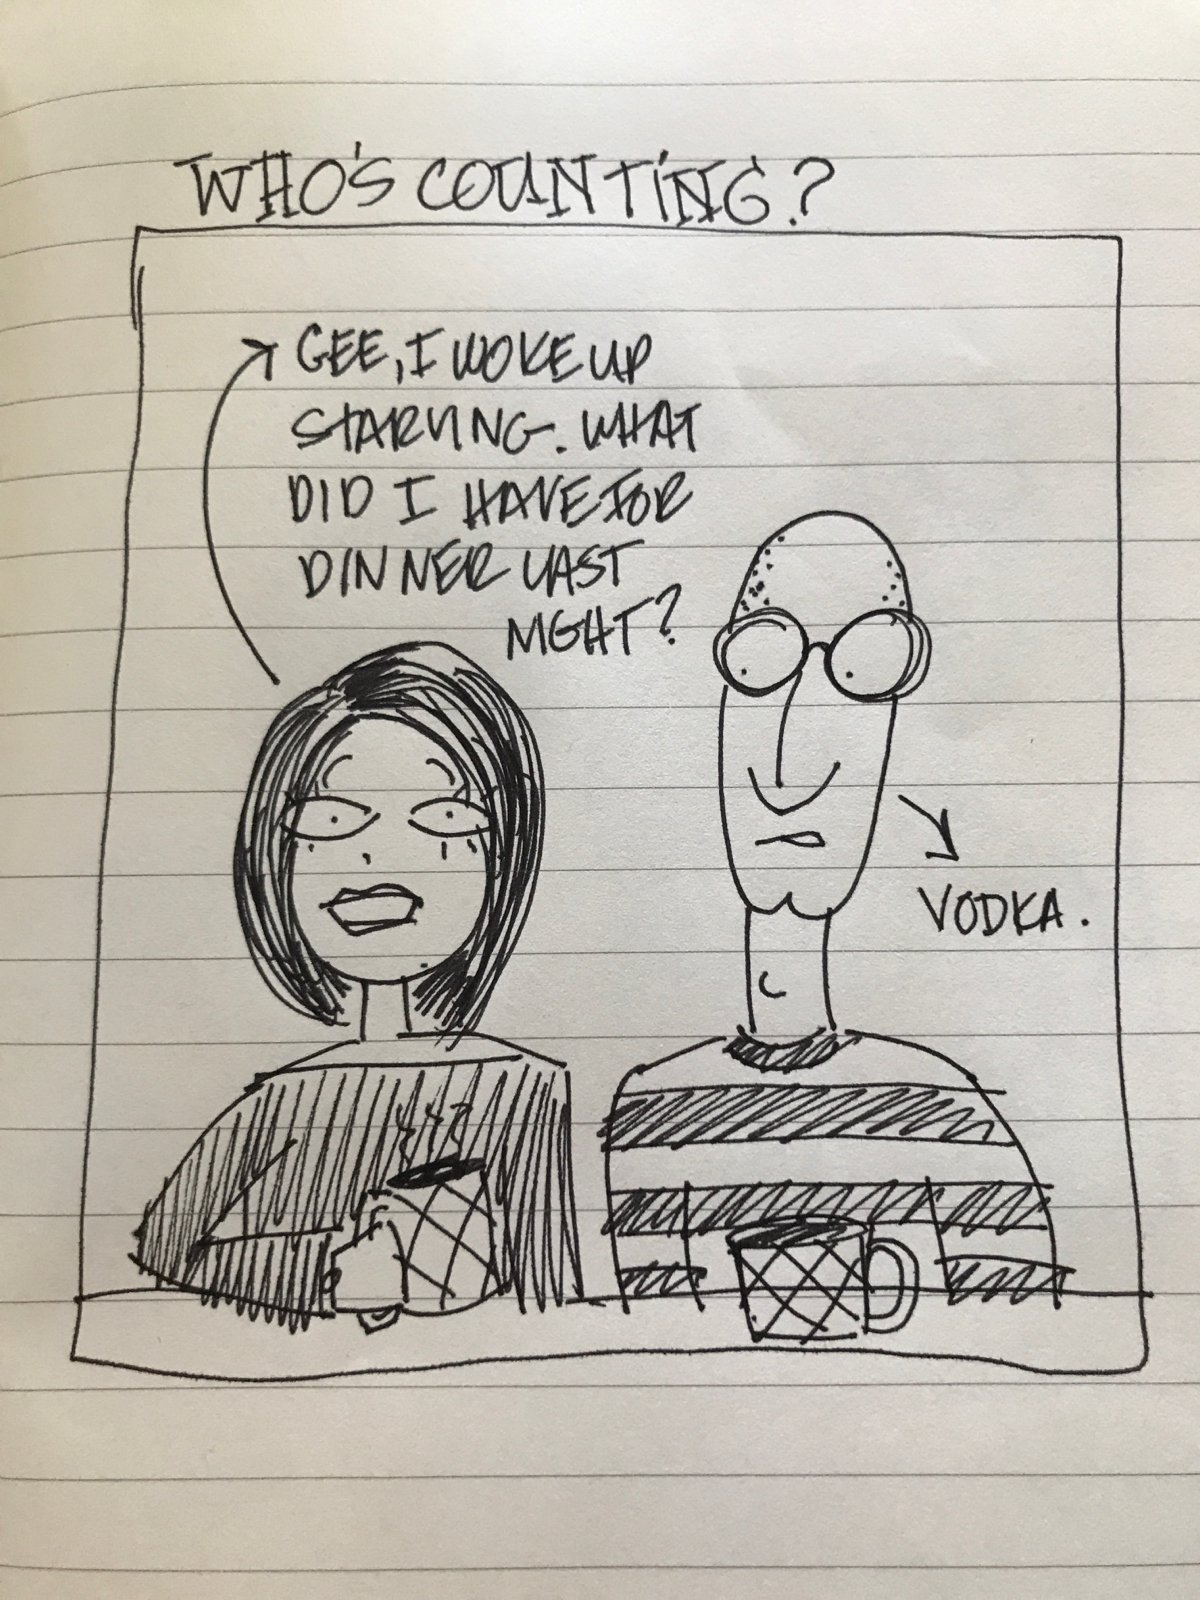 WHO'S COUNTING?
GEE, I WOKE UP
STARVING. WHAT
DID I HAVE FOR
DINNER LAST
NIGHT?
VODKA.